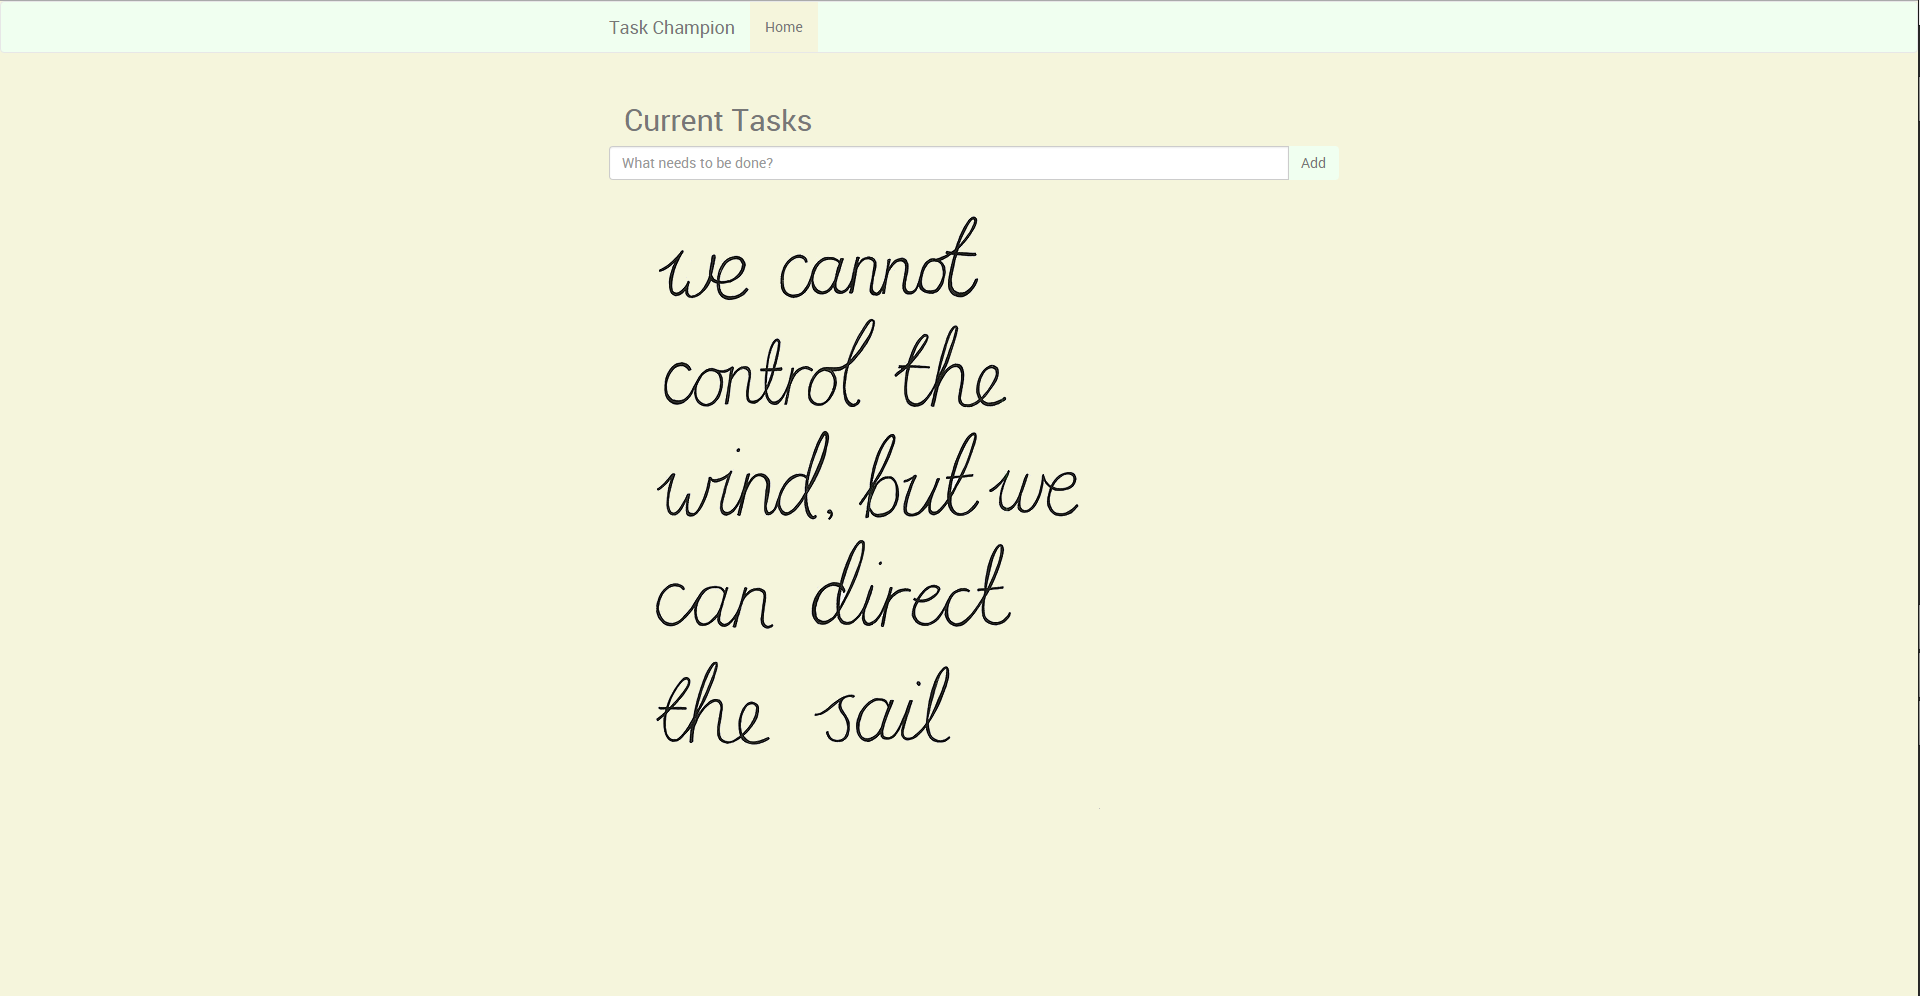 Task Champion Home
Current Tasks
What needs to be done? Add
we cannot
control the
wind, but we
can direct
the sail